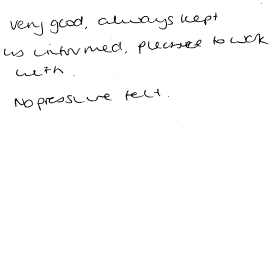 very good, always kept
us informed, pleasure to work
with.
No pressure felt.